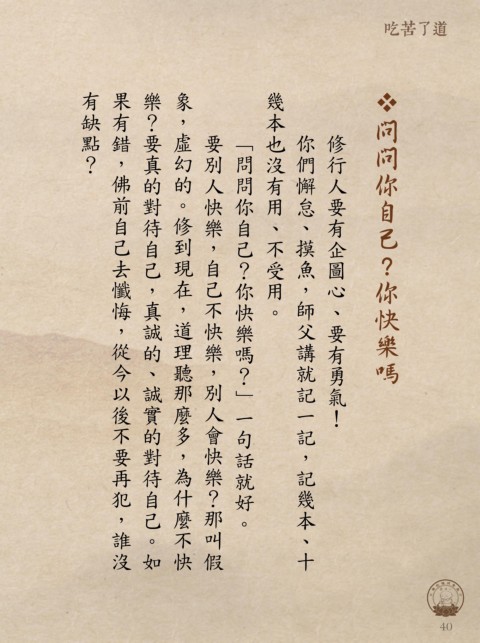 吃苦了道
❖問問你自己？你快樂嗎
修行人要有企圖心、要有勇氣！
你們懈怠、摸魚，師父講就記一記，記幾本、十
幾本也沒有用、不受用。
「問問你自己？你快樂嗎？」一句話就好。
要別人快樂，自己不快樂，別人會快樂？那叫假
象，虛幻的。修到現在，道理聽那麼多，為什麼不快
樂？要真的對待自己，真誠的、誠實的對待自己。如
果有錯，佛前自己去懺悔，從今以後不要再犯，誰沒
有缺點？
40